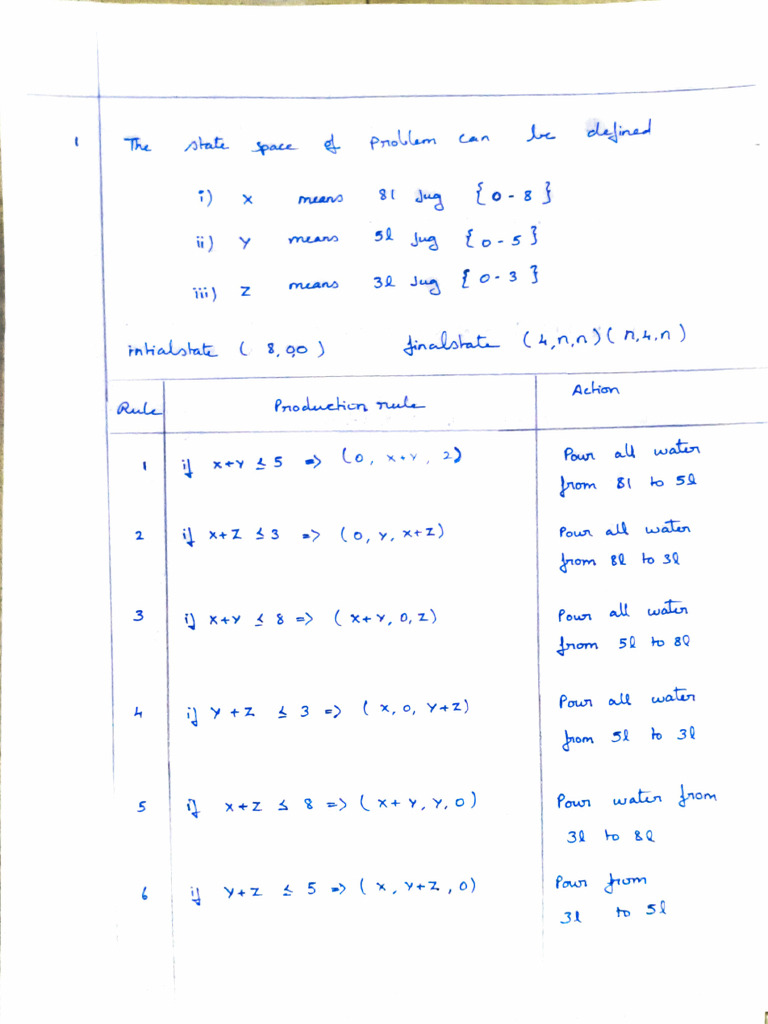 1 The state space of problem can be defined
i) x means 8l Jug {0-8}
ii) y means 5l Jug {0-5}
iii) z means 3l Jug {0-3}
intialstate (8,00) finalstate (4,n,n)(n,4,n)
Rule Production rule Action
1 if x+y ≤ 5 => (0, x+y, 2) Pour all water
from 8l to 5l
2 if x+z ≤ 3 => (0, y, x+z) Pour all water
from 8l to 3l
3 if x+y ≤ 8 => (x+y, 0, z) Pour all water
from 5l to 8l
4 if y+z ≤ 3 => (x, 0, y+z) Pour all water
from 5l to 3l
5 if x+z ≤ 8 => (x+y, y, 0) Pour water from
3l to 8l
6 if y+z ≤ 5 => (x, y+z, 0) Pour from
3l to 5l